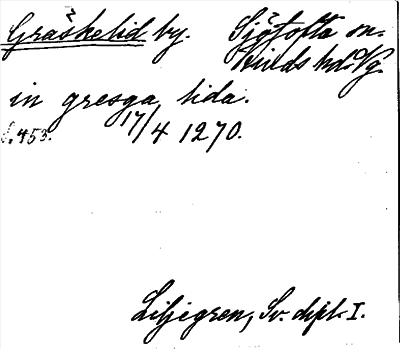 Gräskelid by. Sjötofta sn.
Kinds hd. Vg.
in gresga lida.
s. 453. 17/4 1270.
Liljegren, Sv. dipl. I.